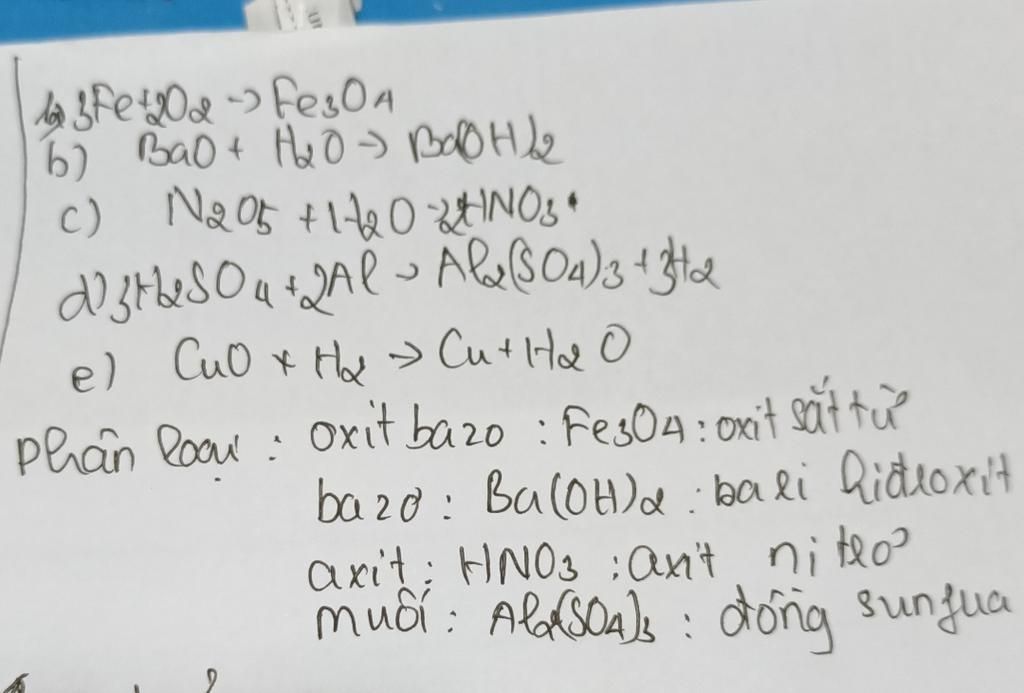 a) 3Fe+2O2 -> Fe3O4
b) BaO + H2O -> Ba(OH)2
c) N2O5 + H2O -> 2HNO3
d) 3H2SO4 + 2Al -> Al2(SO4)3 + 3H2
e) CuO + H2 -> Cu + H2O
Phân loại : oxit bazo : Fe3O4 : oxit sắt từ
bazơ : Ba(OH)2 : bari hidroxit
axit : HNO3 : axit nitro
muối : Al2(SO4)3 : đồng sunfua